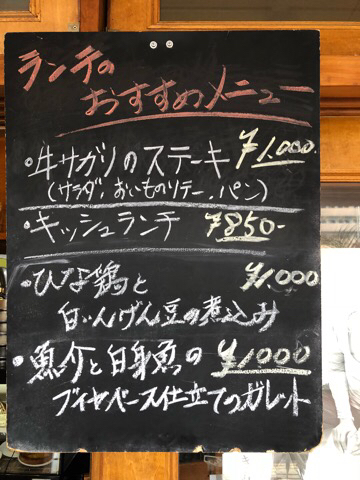 ランチの
おすすめメニュー
・牛サガリのステーキ ¥1,000.
(サラダ、おいものソテー、パン)
・キッシュランチ ¥850-
・ひな鶏と ¥1,000
白いんげん豆の煮込み
・魚介と白身魚の ¥1000
ブイヤベース仕立てのガレット